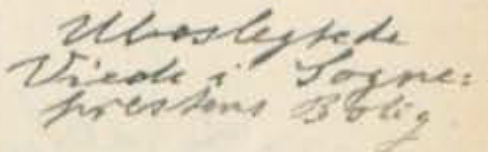 Ubeslegtede
Viede i Sogne:
prestens Bolig